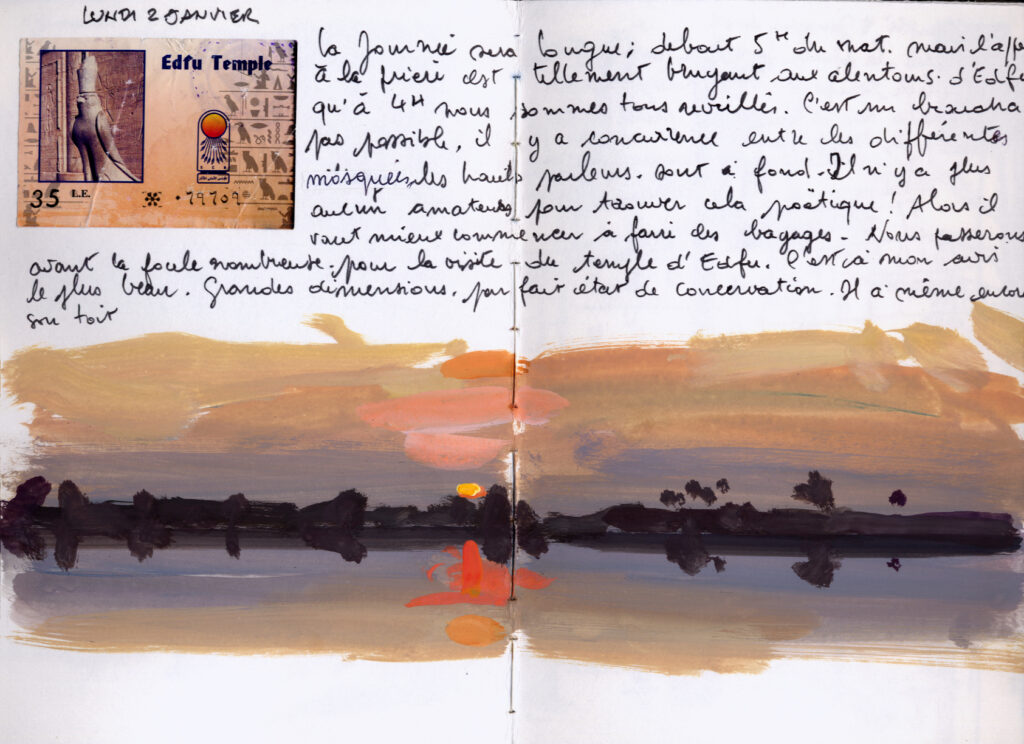 LUNDI 2 JANVIER
Edfu Temple
35 L.E.
79709
La journée sera longue; debout 5H du mat. mais l'appe
à la prière est tellement bruyant aux alentours d'Edfu
qu'à 4H nous sommes tous réveillés. C'est un
pas possible, il y a concurrence entre les différentes
mosquées, les hauts parleurs sont à fond. Il n'y a plus
aucun amateurs pour trouver cela poëtique! Alors il
vaut mieux commencer à faire des bagages. Nous passerons
avant la foule nombreuse pour la visite du temple d'Edfu. C'est à mon avis
le plus beau. Grandes dimensions, parfait état de concervation. Il a même encore
son toit